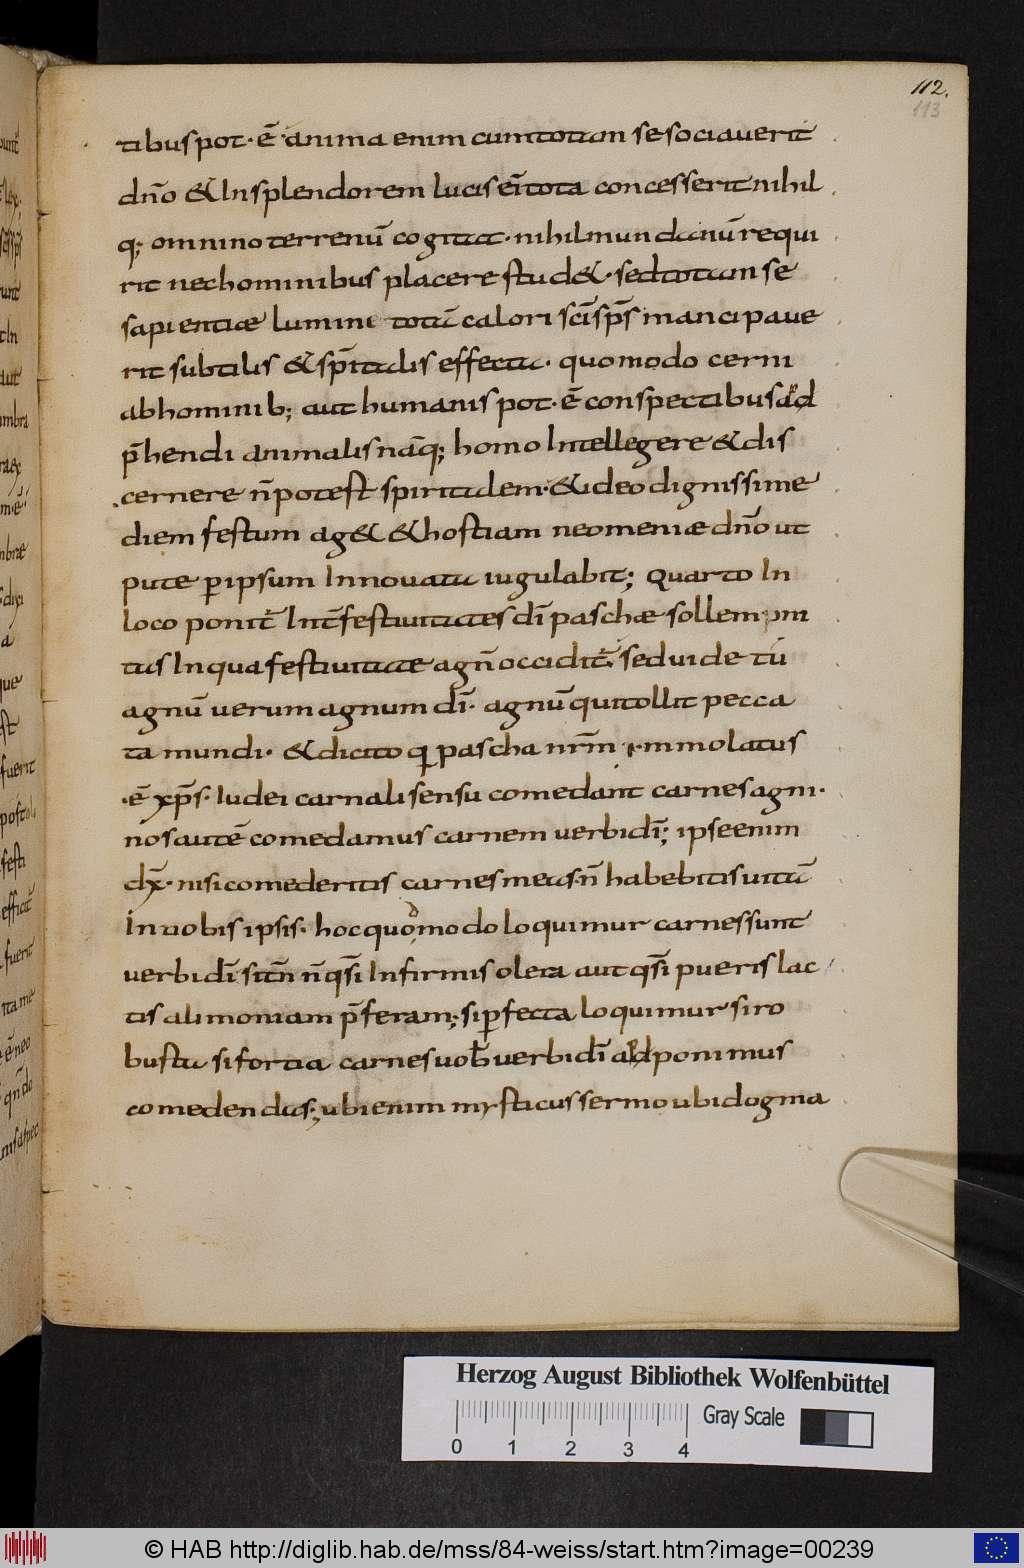 112.
113
tibus pot· ē· anima enim cum totam se sociauerit
dn̄o & In splendorem lucis ei tota concesserit nihil
q; omnino terrenū cogitat· nihil mundanū requi
rit nec hominibus placere stud&· sed totam se
sapientiae lumini totā calori sc̄i sp̄s mancipaue
rit subtilis & sp̄italis effecta· quomodo cerni
ab hominib; aut humanis pot· ē conspectibus ad
p̄hendi animalis nāq; homo Intellegere & dis
cernere n̄ potest spiritalem· & ideo dignissime
diem festum ag& & hostiam neomeniae dn̄o ut
pute p ipsum Innouata iugulabit; Quarto In
loco ponit̄ Int̄ festiuitates dī paschae sollemni
tas In qua festiuitate agn̄ occidit̄· sed uide tū
agnū uerum agnum dī· agnū qui tollit pecca
ta mundi· & dicito q pascha nr̄m immolatus
·ē xp̄s· Iudei carnali sensu comedant carnes agni·
nos autē comedamus carnem uerbi dī; ipse enim
dx̄· nisi comederitis carnes meas· n̄ habebitis uitā
In uobis ipsis· hoc quod modo loquimur carnes sunt
uerbi dī si tn̄ n̄ qsī Infirmis olera aut qsī pueris lac
tis alimoniam p̄feram; si pfecta loquimur si ro
busta si fortia carnes uob̄ uerbi dī adponimus
comedendas; ubi enim mysticus sermo ubi dogma
Herzog August Bibliothek Wolfenbüttel
Gray Scale
0 1 2 3 4
© HAB http://diglib.hab.de/mss/84-weiss/start.htm?image=00239